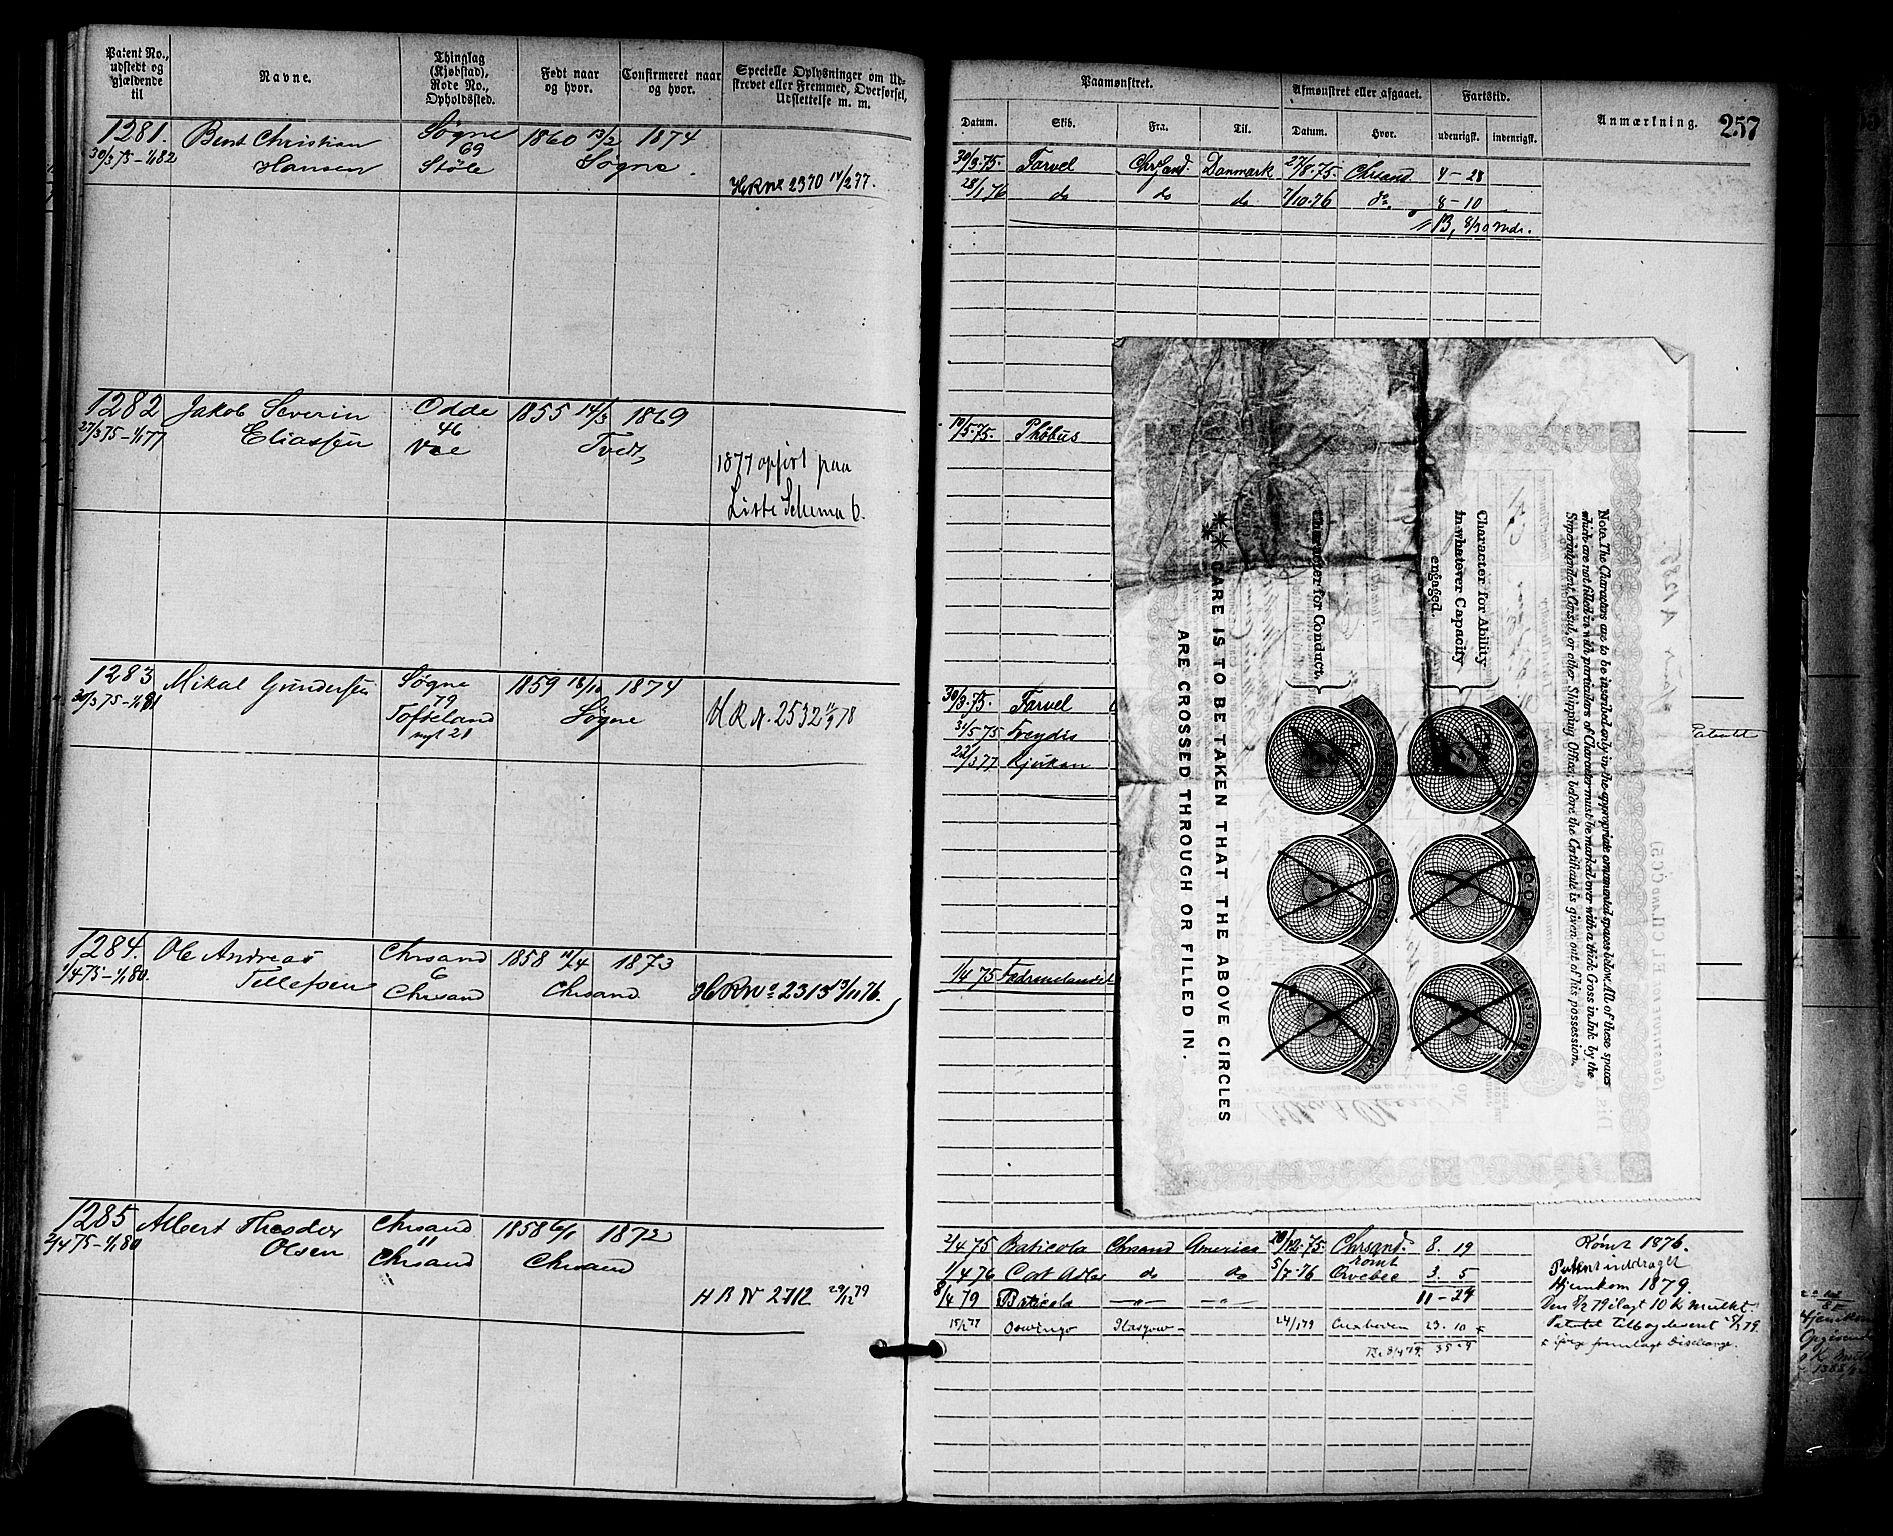 Patent No., udstedt og gjældende til
Navne.
Thinglag (Kjøbstad), Rode No., Opholdssted.
Født naar og hvor.
Confirmeret naar og hvor.
Specielle Oplysninger om Udskrevet eller Fremmed, Overførsel, Udslettelse m. m.
1281. Bent Christian Søgne 1860 13/2 1874
30/3 75-1/1 82 Hansen 69 Støle Søgne.
HRNo 2370 14/2 77.
1282 Jakob Severin Odde 1855 14/3 1869
27/3 75-1/1 77 Eliassen 46 Voe Tvedt
1877 opført paa
Liste Schema 6.
1283 Mikal Gundersen Søgne 1859 18/10 1874
30/3 75-1/1 81 79 Tofteland Søgne
HRN. 2532 78
1284. Ole Andreas Chrsand 1858 11/4 1873
1/4 75-1/1 80. Tellefsen 6 Chrsand Chrsand
HRNo 2315 13/11 76.
1285 Albert Theodor Chrsand 1858 6/1 1872
2/4 75-1/1 80 Olsen 11 Chrsand Chrsand
HRN 2712 29/12 79
Paamønstret.
Afmønstret eller afgaaet.
Fartstid.
Anmærkning. 257
Datum. Skib. Fra. Til. Datum. Hvor. udenrigst. indenrigst.
30/3.75. Farvel Chrsand. Danmark 27/8.75. Chrsand. 4-28
28/1 76 do do do 7/10.76 do. 8-10
13, 8/30 Mdr.
10/5.75. Phøbus
30/3.75. Farvel
31/5 75 Freydis
22/3 77 Rjukan
1/4 75 Fædrenelandet
2/4 75 Baticola Chrsand America 20/12.75. Chrsand. 8. 19
Rømt 1876.
1/4 76 Cort Adler do do 5/7.76 rømt Qvebec 3. 5
Patent inddraget
8/4 79 Baticola 11-24
Hjemkom 1879.
Glasgow 24/1 79 Cuxhaven 23. 10
35-9
Character for Conduct.
Character for Ability
in whatever Capacity
engaged.
VERY GOOD
VERY GOOD
GOOD
GOOD
*** CARE IS TO BE TAKEN THAT THE ABOVE CIRCLES
ARE CROSSED THROUGH OR FILLED IN.
Note. The Characters are to be inscribed only in the appropriate ornamented spaces below. All of these spaces
which are not filled in with particulars of Character must be marked over with a thick Cross in Ink by the
Superintendent, Consul, or other Shipping Officer, before the Certificate is given out of his possession.